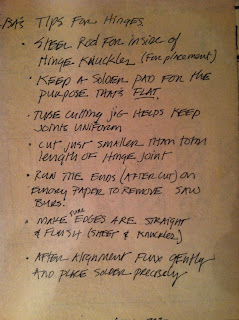 BA'S TIPS FOR HINGES
• STEEL Rod FOR inside of
Hinge KNUCKLES (For placement)
• KEEP A SOLDER PAD FOR THE
PURPOSE THAT'S FLAT.
• TUBE CUTTING JIG HELPS KEEP
JOINTS UNIFORM
• CUT JUST SMALLER THAN TOTAL
LENGTH OF HINGE JOINT
• RUN THE ENDS (AFTER CUT) ON
EMORY PAPER TO REMOVE SAW
BURS!
• MAKE SURE EDGES ARE STRAIGHT
& FLUSH (SHEET & KNUCKLES)
• AFTER Alignment FLUX GENTLY
AND PLACE SOLDER PRECISELY